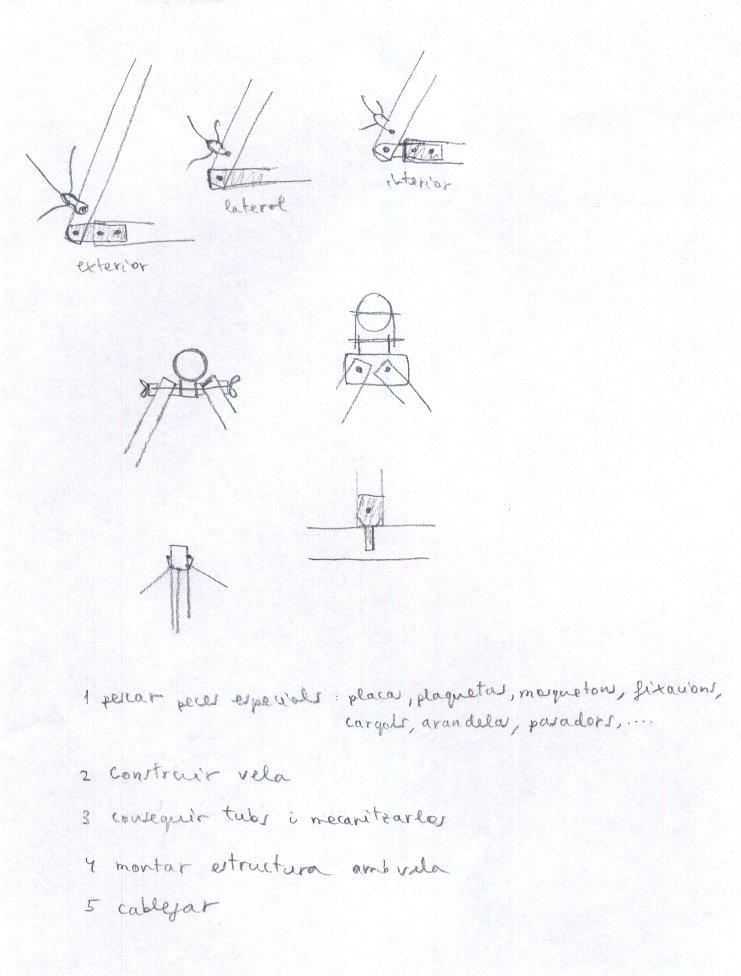 lateral
interior
exterior
1 pescar peces especials : placas, plaquetas, mosquetons, fixacions,
cargols, arandelas, pasadors, ....
2 construir vela
3 conseguir tubs i mecanitzarlos
4 montar estructura amb vela
5 cablejar